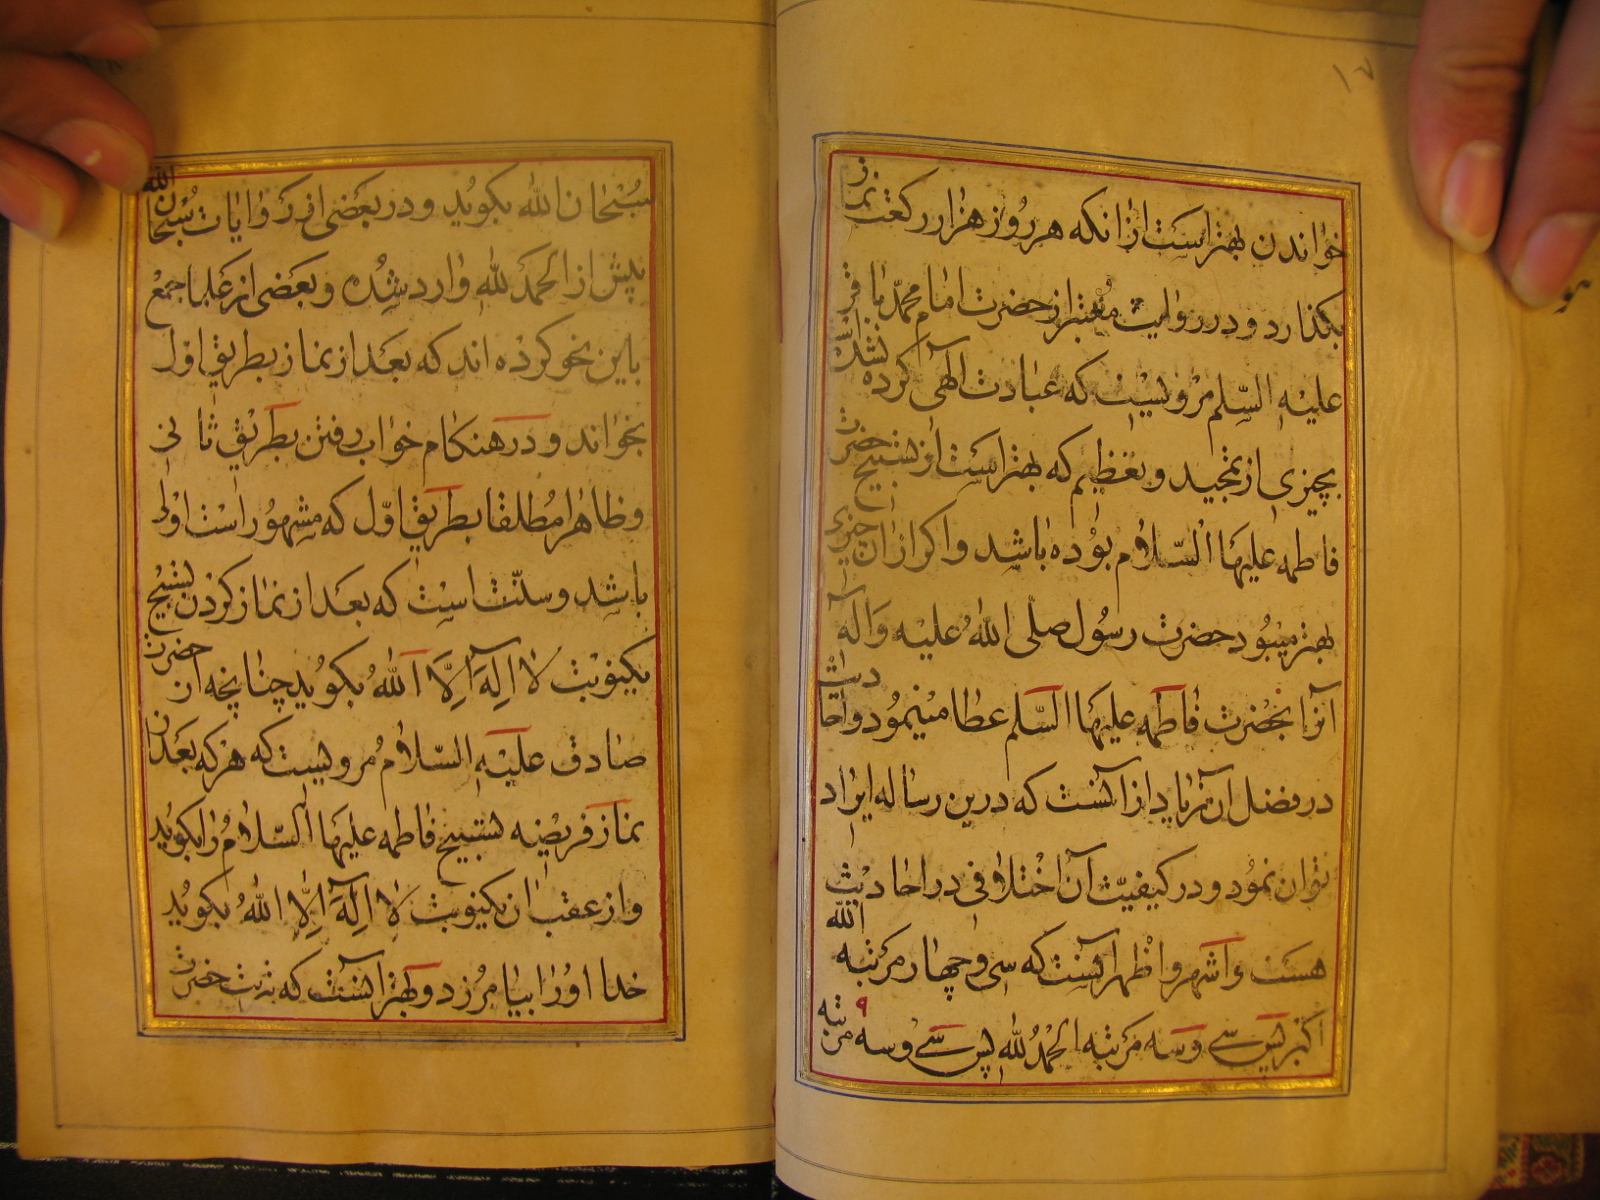 ۱۷
خواندن بهتر است از انکه هر روز هزار رکعت نماز
بکذارد و در روایت معتبر از حضرت امام محمد باقر
علیه السلم مرویست که عبادت الهی کرده نشده است
بچیزی از تمجید و تعظیم که بهتر است از تسبیح حضرت
فاطمه علیها السلام بوده باشد و اکر از ان چیزی
بهتر میبود حضرت رسول صلی الله علیه و آله
آنرا بحضرت فاطمه علیها السلم عطا مینمود و احادیث
در فضل آن زیاد از آنست که درین رساله ایراد
توان نمود و در کیفیت آن اختلافی در احادیث
هست و اشهر و اظهر آنست که سی و چهار مرتبه الله
اکبر پس سی و سه مرتبه الحمد لله پس سی و سه مرتبه
سبحان الله بکوید و در بعضی از روایات سبحان الله
پیش از الحمد لله وارد شده و بعضی از علما جمع
باین نحو کرده اند که بعد از نماز بطریق اول
بخواند و در هنکام خواب رفتن بطریق ثانی
و ظاهرا مطلقا بطریق اول که مشهور است اولی
باشد و سنت است که بعد از نماز کردن تسبیح
یکنوبت لا اله الا الله بکوید چنانچه از حضرت
صادق علیه السلام مرویست که هر که بعد از
نماز فریضه تسبیح فاطمه علیها السلام را بکوید
و از عقب ان یکنوبت لا اله الا الله بکوید
خدا اورا بیامرزد و بهتر آنست که تربت حضرت